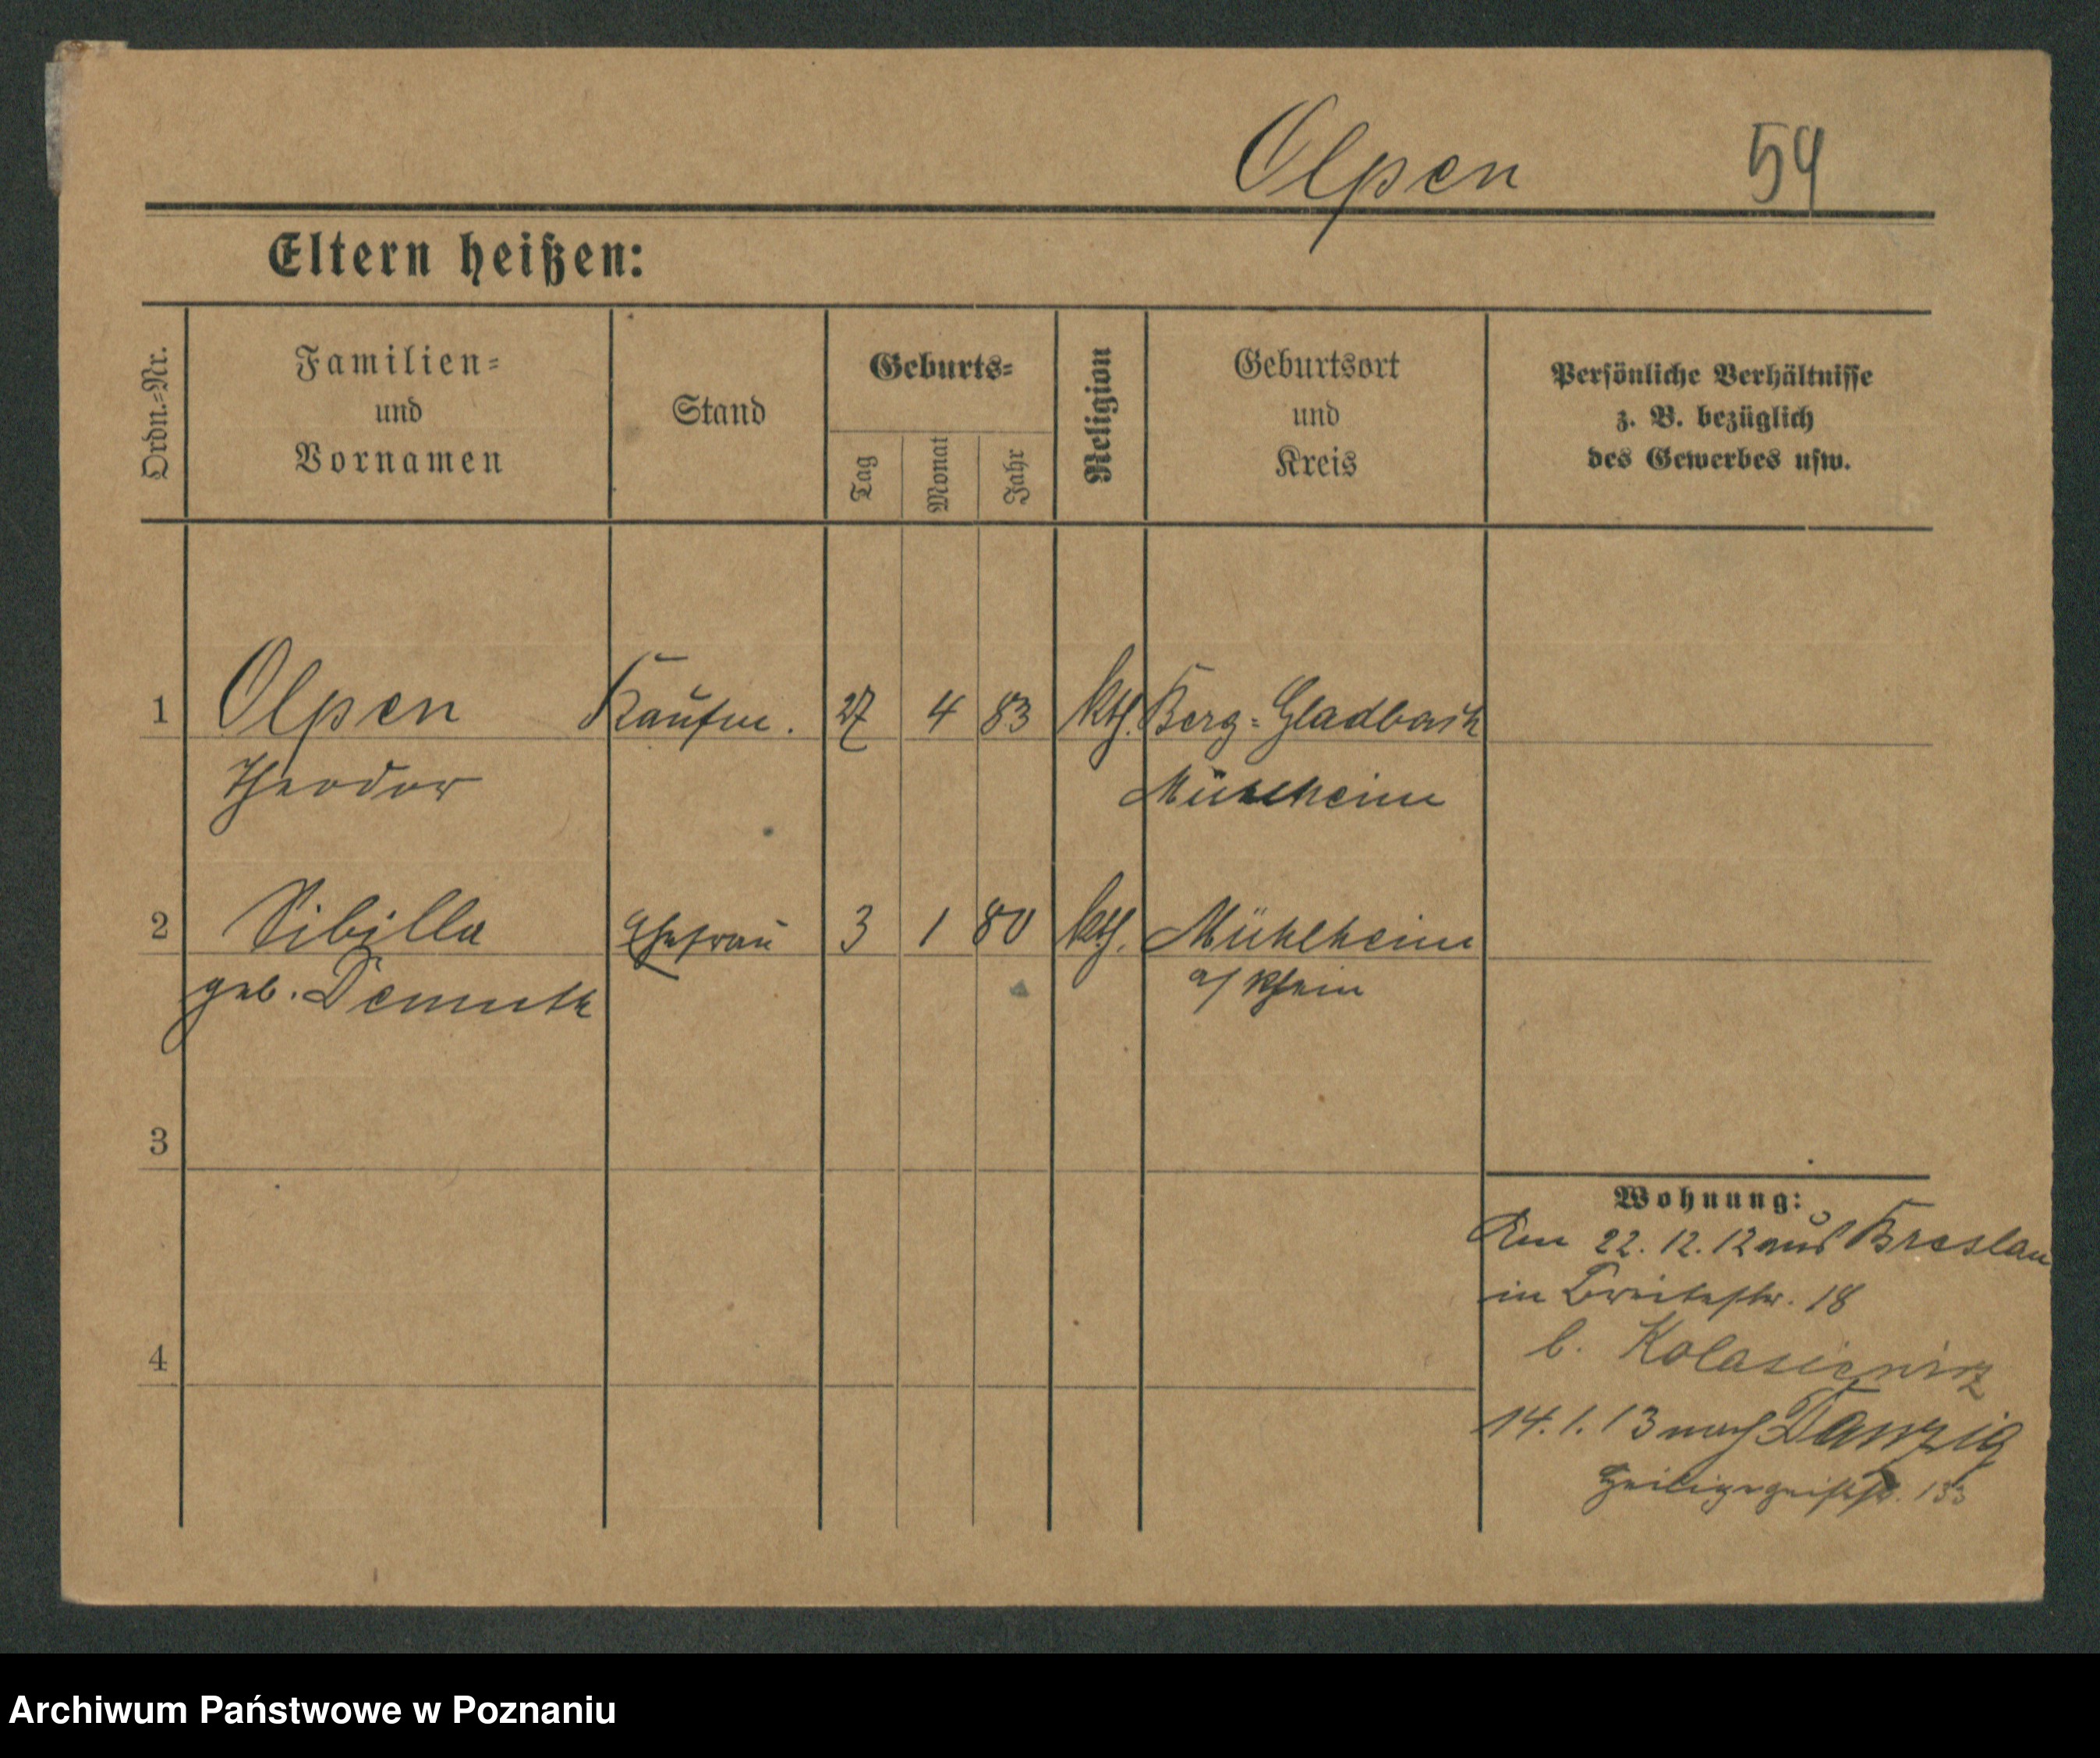 Olpen 54
Eltern heißen:
Ordn.-Nr.
Familien-
und
Vornamen
Stand
Geburts-
Tag
Monat
Jahr
Religion
Geburtsort
und
Kreis
Persönliche Verhältnisse
z. B. bezüglich
des Gewerbes usw.
1 Olpen Kaufm. 27 4 83 kth. Berg-Gladbach
Theodor Mühlheim
2 Sibilla Ehefrau 3 1 80 kth. Mühlheim
geb. Demuth a/ Rhein
3
4
Wohnung:
Am 22. 12. 12 aus Breslau
in Breitestr. 18
b. Kolasiewicz
14. 1. 13 nach Danzig
Heiligegeiststr. 133
Archiwum Państwowe w Poznaniu